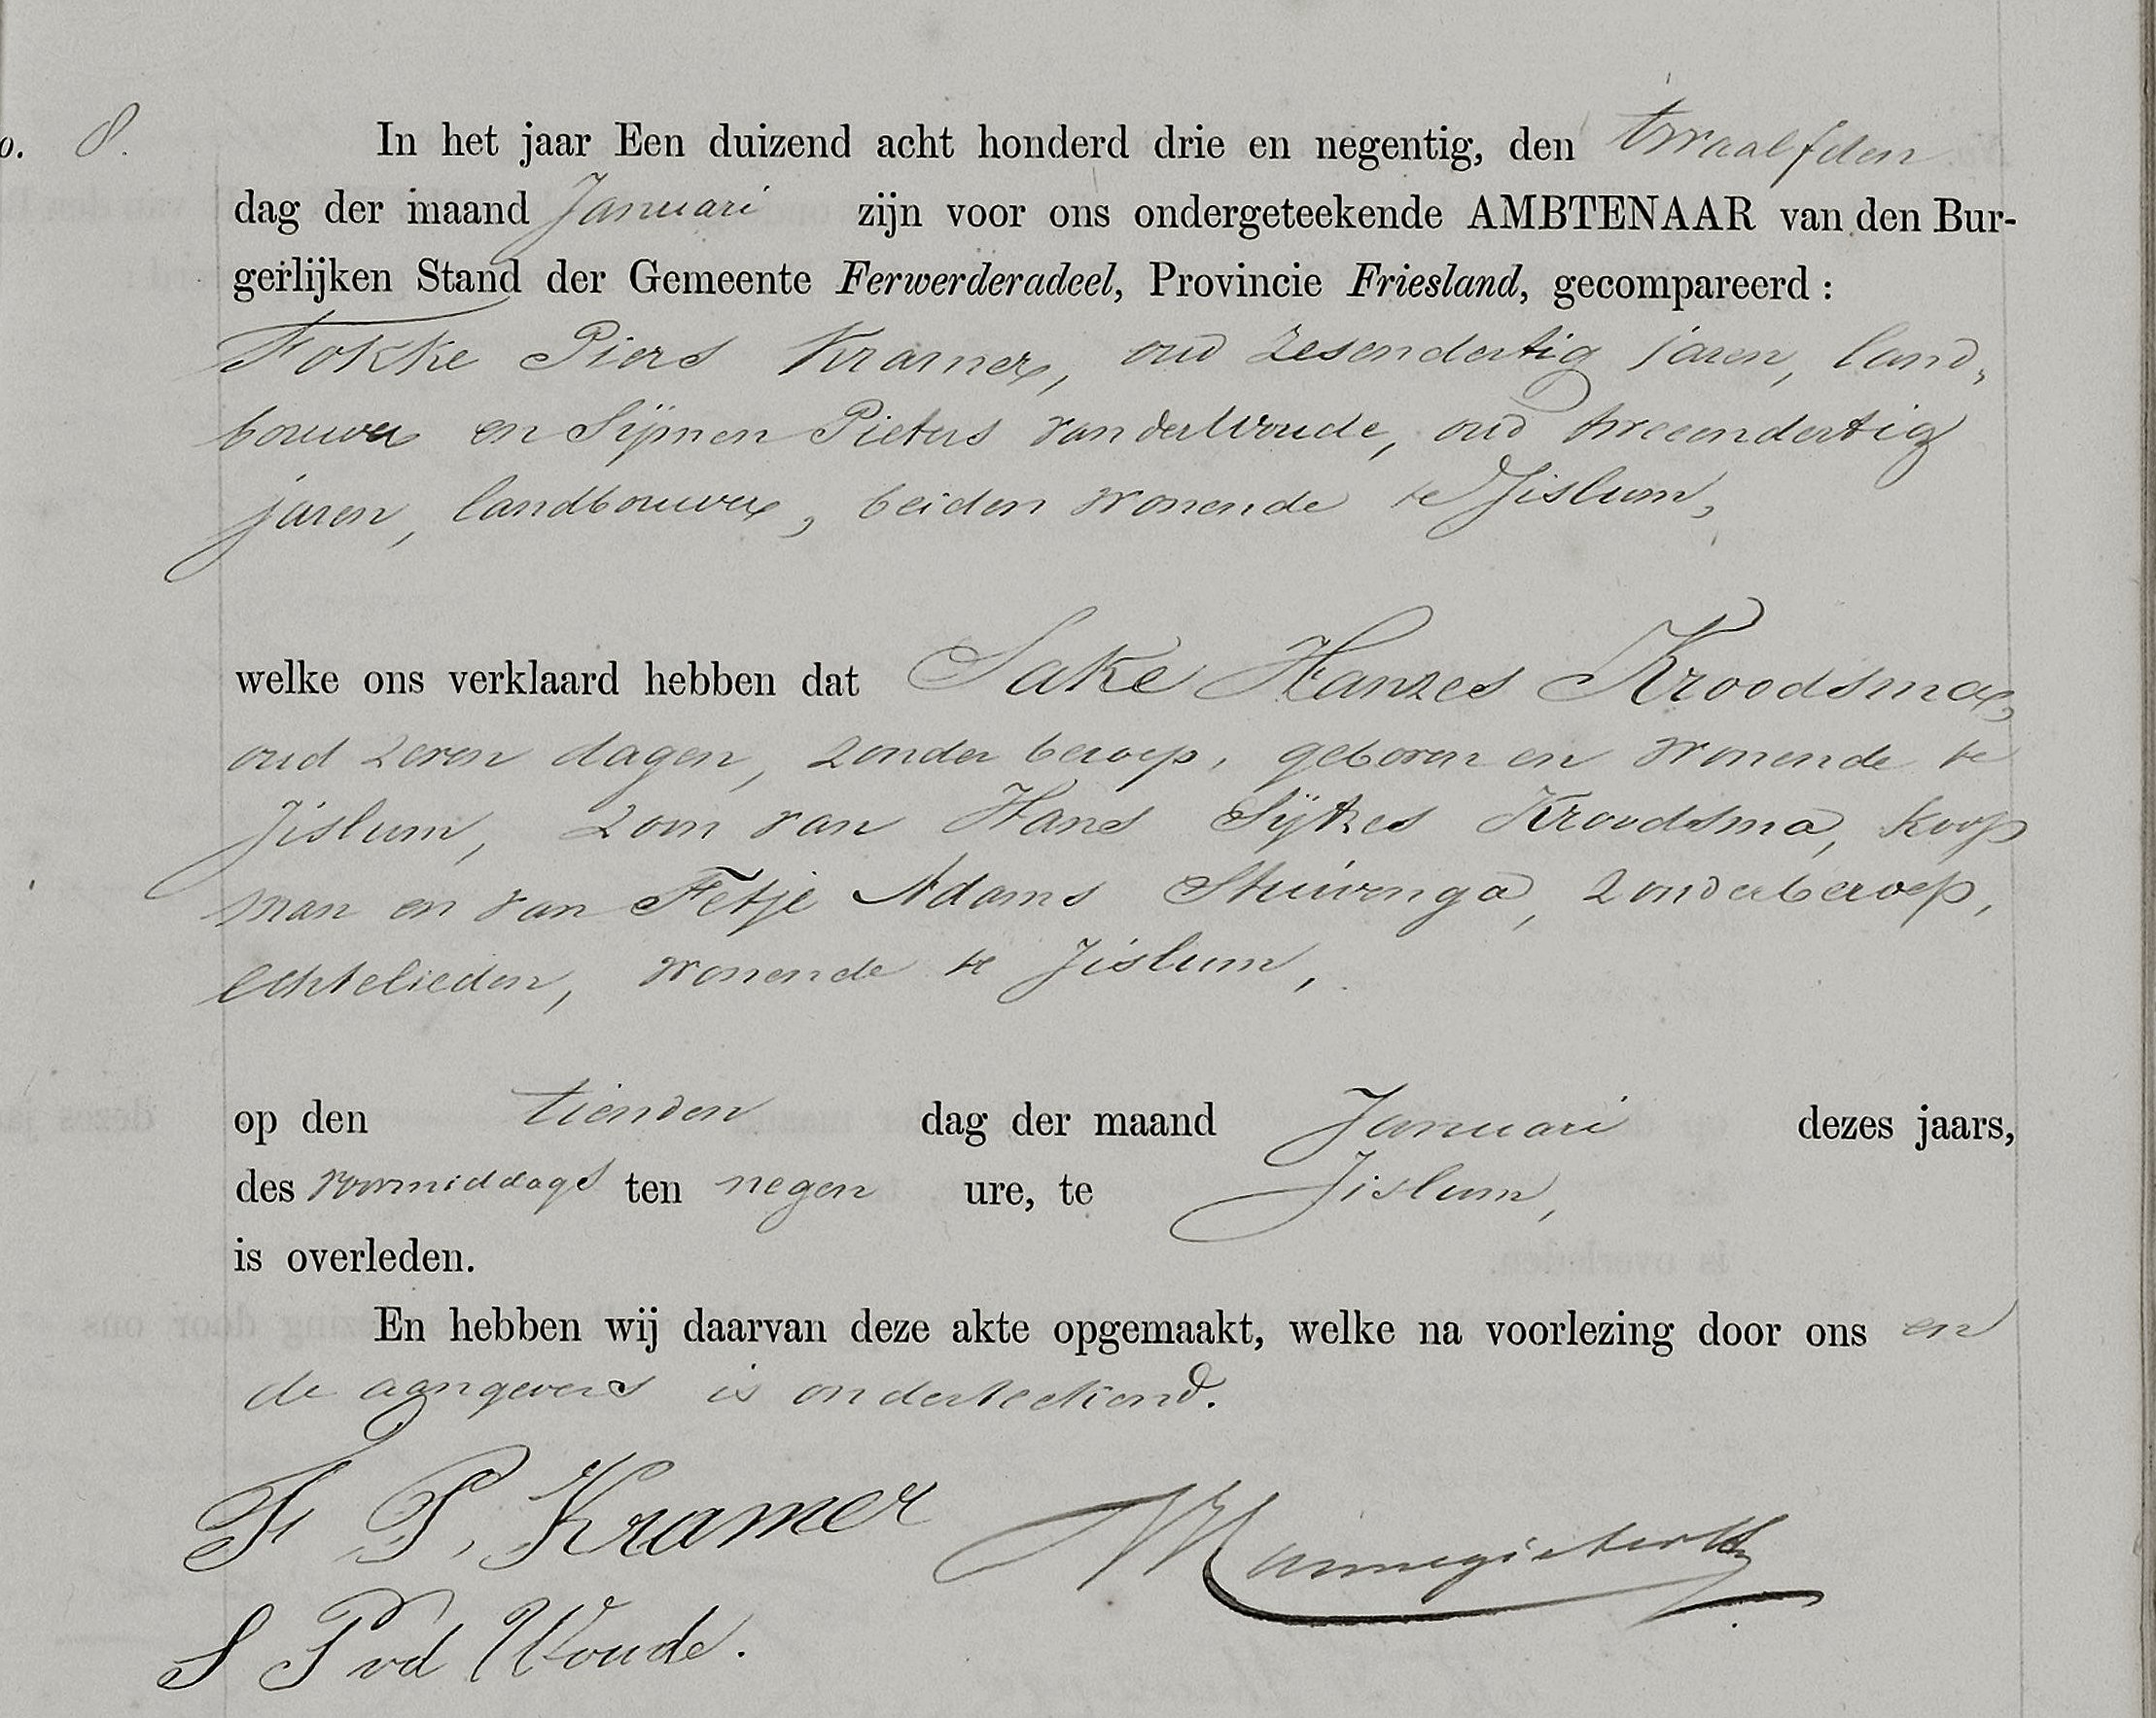 o. 8.
In het jaar Een duizend acht honderd drie en negentig, den twaalfden
dag der maand Januari zijn voor ons ondergeteekende AMBTENAAR van den Bur-
gerlijken Stand der Gemeente Ferwerderadeel, Provincie Friesland, gecompareerd :
Fokke Piers Kramer, oud zesendertig jaren, land,
bouwer en Sijmen Pieters van der Woude, oud tweeendertig
jaren, landbouwer, beiden wonende te Jislum,
welke ons verklaard hebben dat Sake Hanzes Kroodsma,
oud zeven dagen, zonder beroep, geboren en wonende te
Jislum, zoon van Hans Sijtzes Kroodsma, koop
man en van Fetje Adams Stuivenga, zonder beroep,
echtelieden, wonende te Jislum,
op den tienden dag der maand Januari dezes jaars,
des voormiddags ten negen ure, te Jislum,
is overleden.
En hebben wij daarvan deze akte opgemaakt, welke na voorlezing door ons en
de aangevers is onderteekend.
F. P. Kramer
S P vd Woude.